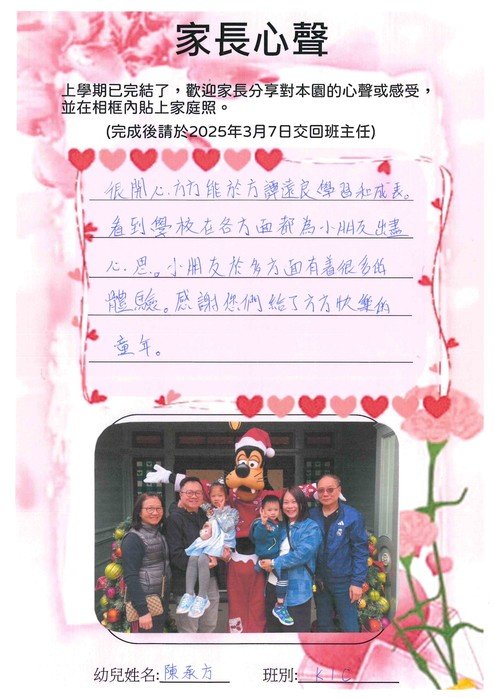 家長心聲
上學期已完結了，歡迎家長分享對本園的心聲或感受，
並在相框內貼上家庭照。
(完成後請於2025年3月7日交回班主任)
很開心方方能於方譚遠良學習和成長。
看到學校在各方面都為小朋友出盡
心思。小朋友於多方面有着很多的
體驗。感謝您們給了方方快樂的
童年。
幼兒姓名:陳承方 班別: K1C